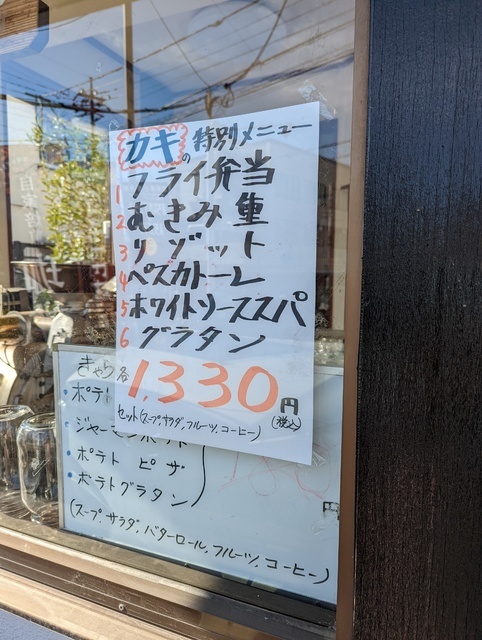 カキの特別メニュー
1 フライ弁当
2 むきみ重
3 リゾット
4 ペスカトーレ
5 ホワイトソーススパ
6 グラタン
各1,330円
(税込)
セット(スープ,サラダ,フルーツ,コーヒー)
きゃら
・ポテト
・ジャーマンポテト
・ポテト ピザ
・ポテトグラタン
円
(スープ,サラダ,バターロール,フルーツ,コーヒー)